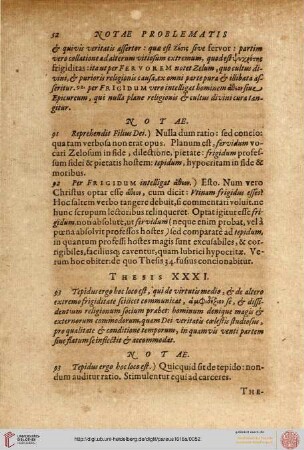 52 NOTAE PROBLEMATIS
& quivis veritatis assertor: quæ est ζέσις sive fervor: partim
vero collatione ad alterum vitiosum extremum, quod est
frigiditas: ita ut per FERVOREM notet Zelum, quo cultus di-
vini, & purioris religionis causa, ex omni parte pura & illibata as-
seritur. per FRIGIDUM vero intelligat hominem sive
Epicureum, qui nulla plane religionis & cultus divini cura tan-
gitur.
NOTAE.
91 Reprehendit Filius Dei.) Nulla dum ratio: sed concio:
qua tam verbosa non erat opus. Planum est, fervidum vo-
cari Zelosum in fide, dilectione, pietate: frigidum profes-
sum fidei & pietatis hostem: tepidum, hypocritam in fide &
moribus.
92 Per FRIGIDUM intelligat ) Esto. Num vero
Christus optat esse cum dicit: Vtinam frigidus esses?
Hoc saltem verbo tangere debuit, si commentari voluit, ne
hunc scrupum lectoribus relinqueret. Optat igitur esse fri-
gidum: non absolute, ut fervidum (neque enim probat, vel à
pœna absolvit professos hostes) sed comparatè ad tepidum,
in quantum professi hostes magis sunt excusabiles, & cor-
rigibiles, faciliusq; caventur, quam lubrici hypocritæ. Ve-
rum hoc obiter: de quo Thesi 34. fusius concionabitur.
THESIS XXXI.
93 Tepidus ergo hoc loco est, qui de virtutis medio, & de altero
extremo frigiditate scilicet communicat, se, & dissi-
dentium religionum socium præbet: hominum denique magis &
externorum commodorum, quem Dei veritatis cælestis studiosus,
pro qualitate & conditione temporum, in quamvis venti partem
sive flatum se inflectit & accommodat.
NOTAE.
93 Tepidus ergo hoc loco est.) Quicquid sit de tepido: non-
dum auditur ratio. Stimulentur equi ad carceres.
THE-
UNIVERSITÄTS-
BIBLIOTHEK
HEIDELBERG
http://digi.ub.uni-heidelberg.de/diglit/pareus1618a/0052